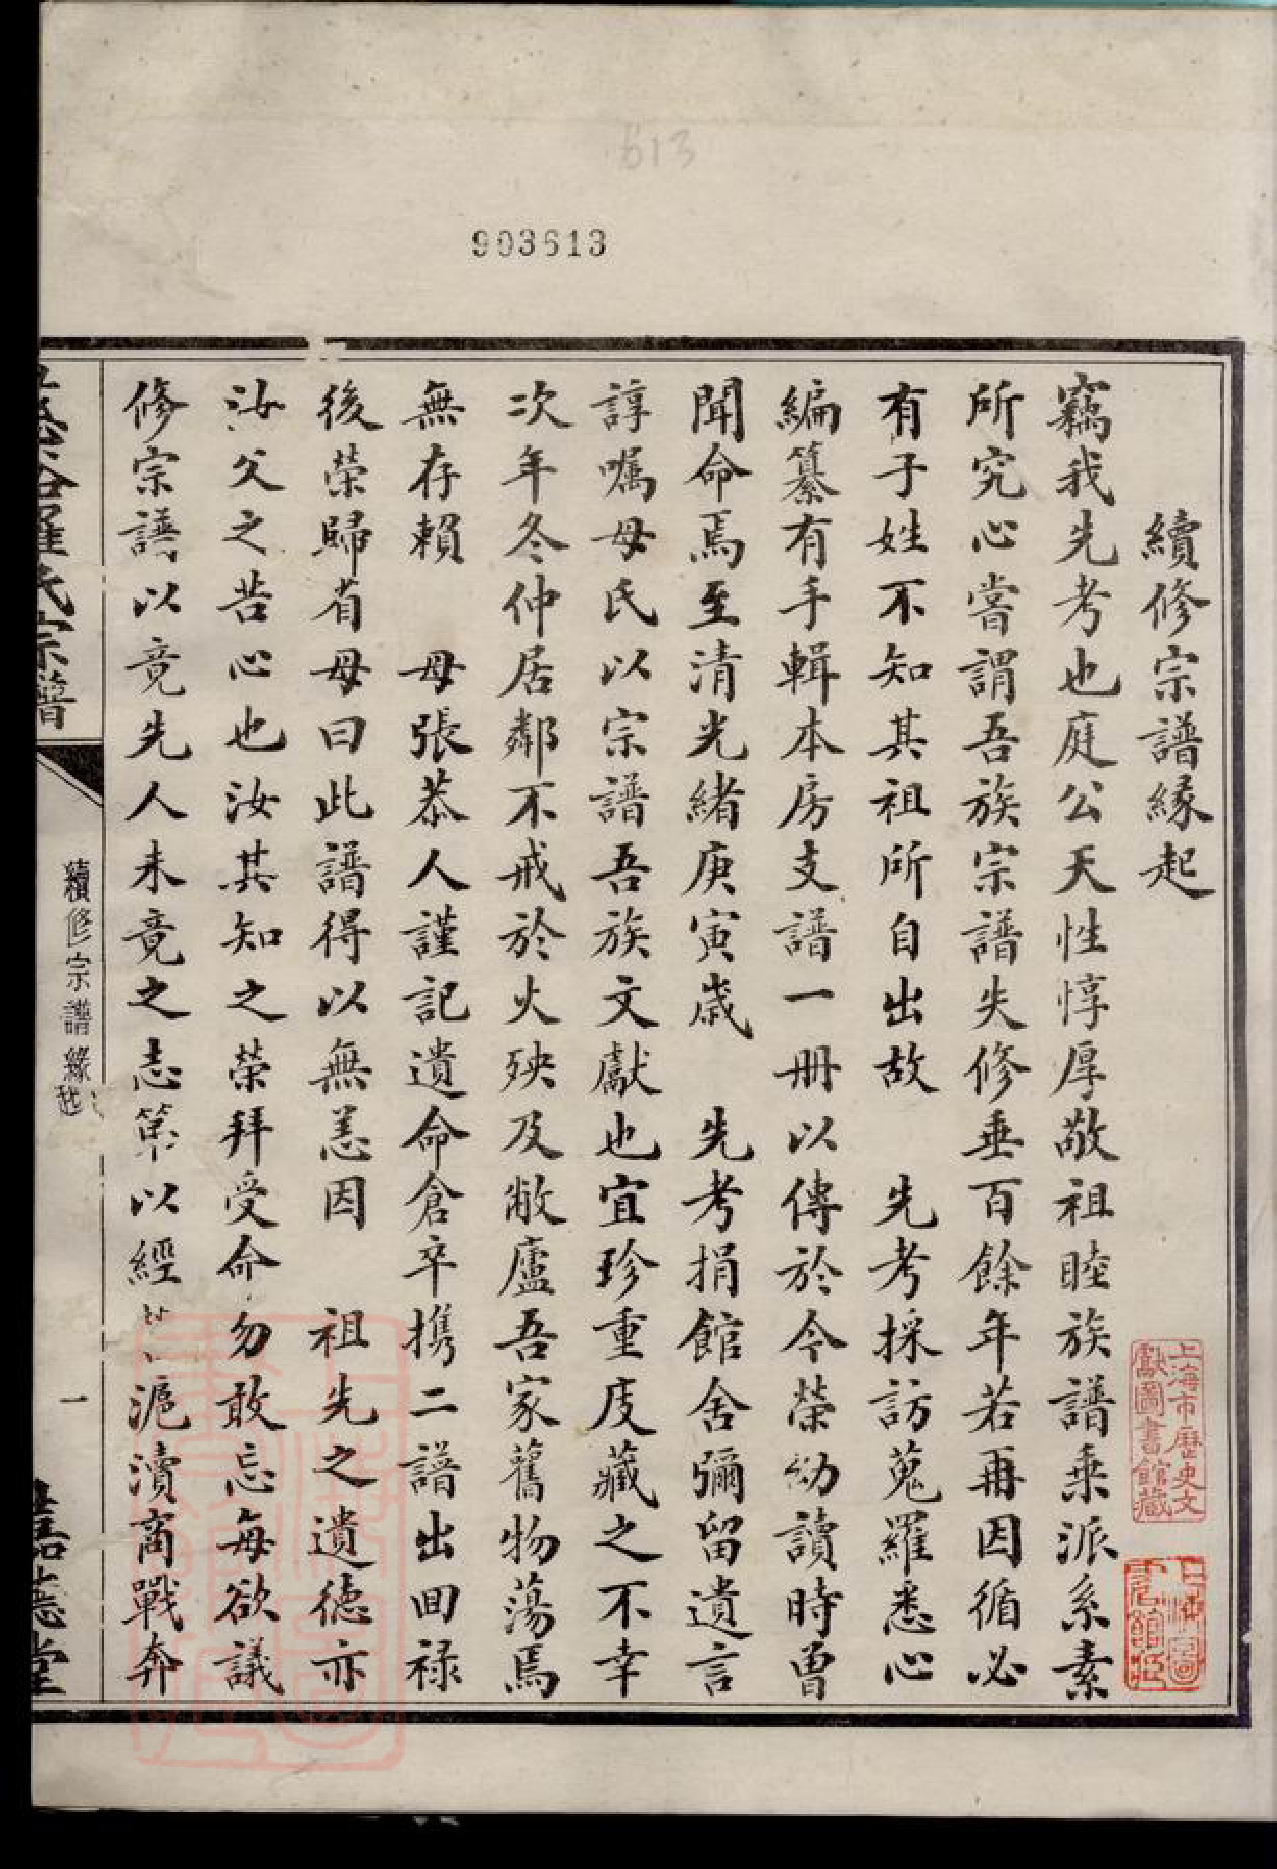 613
903613
續修宗譜緣起
竊我先考也庭公天性惇厚敬祖睦族譜乘派系素
所究心嘗謂吾族宗譜失修垂百餘年若再因循必
有子姓不知其祖所自出故 先考採訪蒐羅悉心
編纂有手輯本房支譜一冊以傳於今榮幼讀時曾
聞命焉至清光緒庚寅歲 先考捐館舍彌留遺言
諄囑母氏以宗譜吾族文獻也宜珍重庋藏之不幸
次年冬仲居鄰不戒於火殃及敝廬吾家舊物蕩焉
無存賴 母張恭人謹記遺命倉卒携二譜出回祿
後榮歸省母曰此譜得以無恙因 祖先之遺德亦
汝父之苦心也汝其知之榮拜受命勿敢忘每欲議
修宗譜以竟先人未竟之志第以經 滬瀆商戰奔
羅氏宗譜
續修宗譜緣起
一
嘉德堂
上海市歷史文
獻圖書館藏
上海圖
書館藏